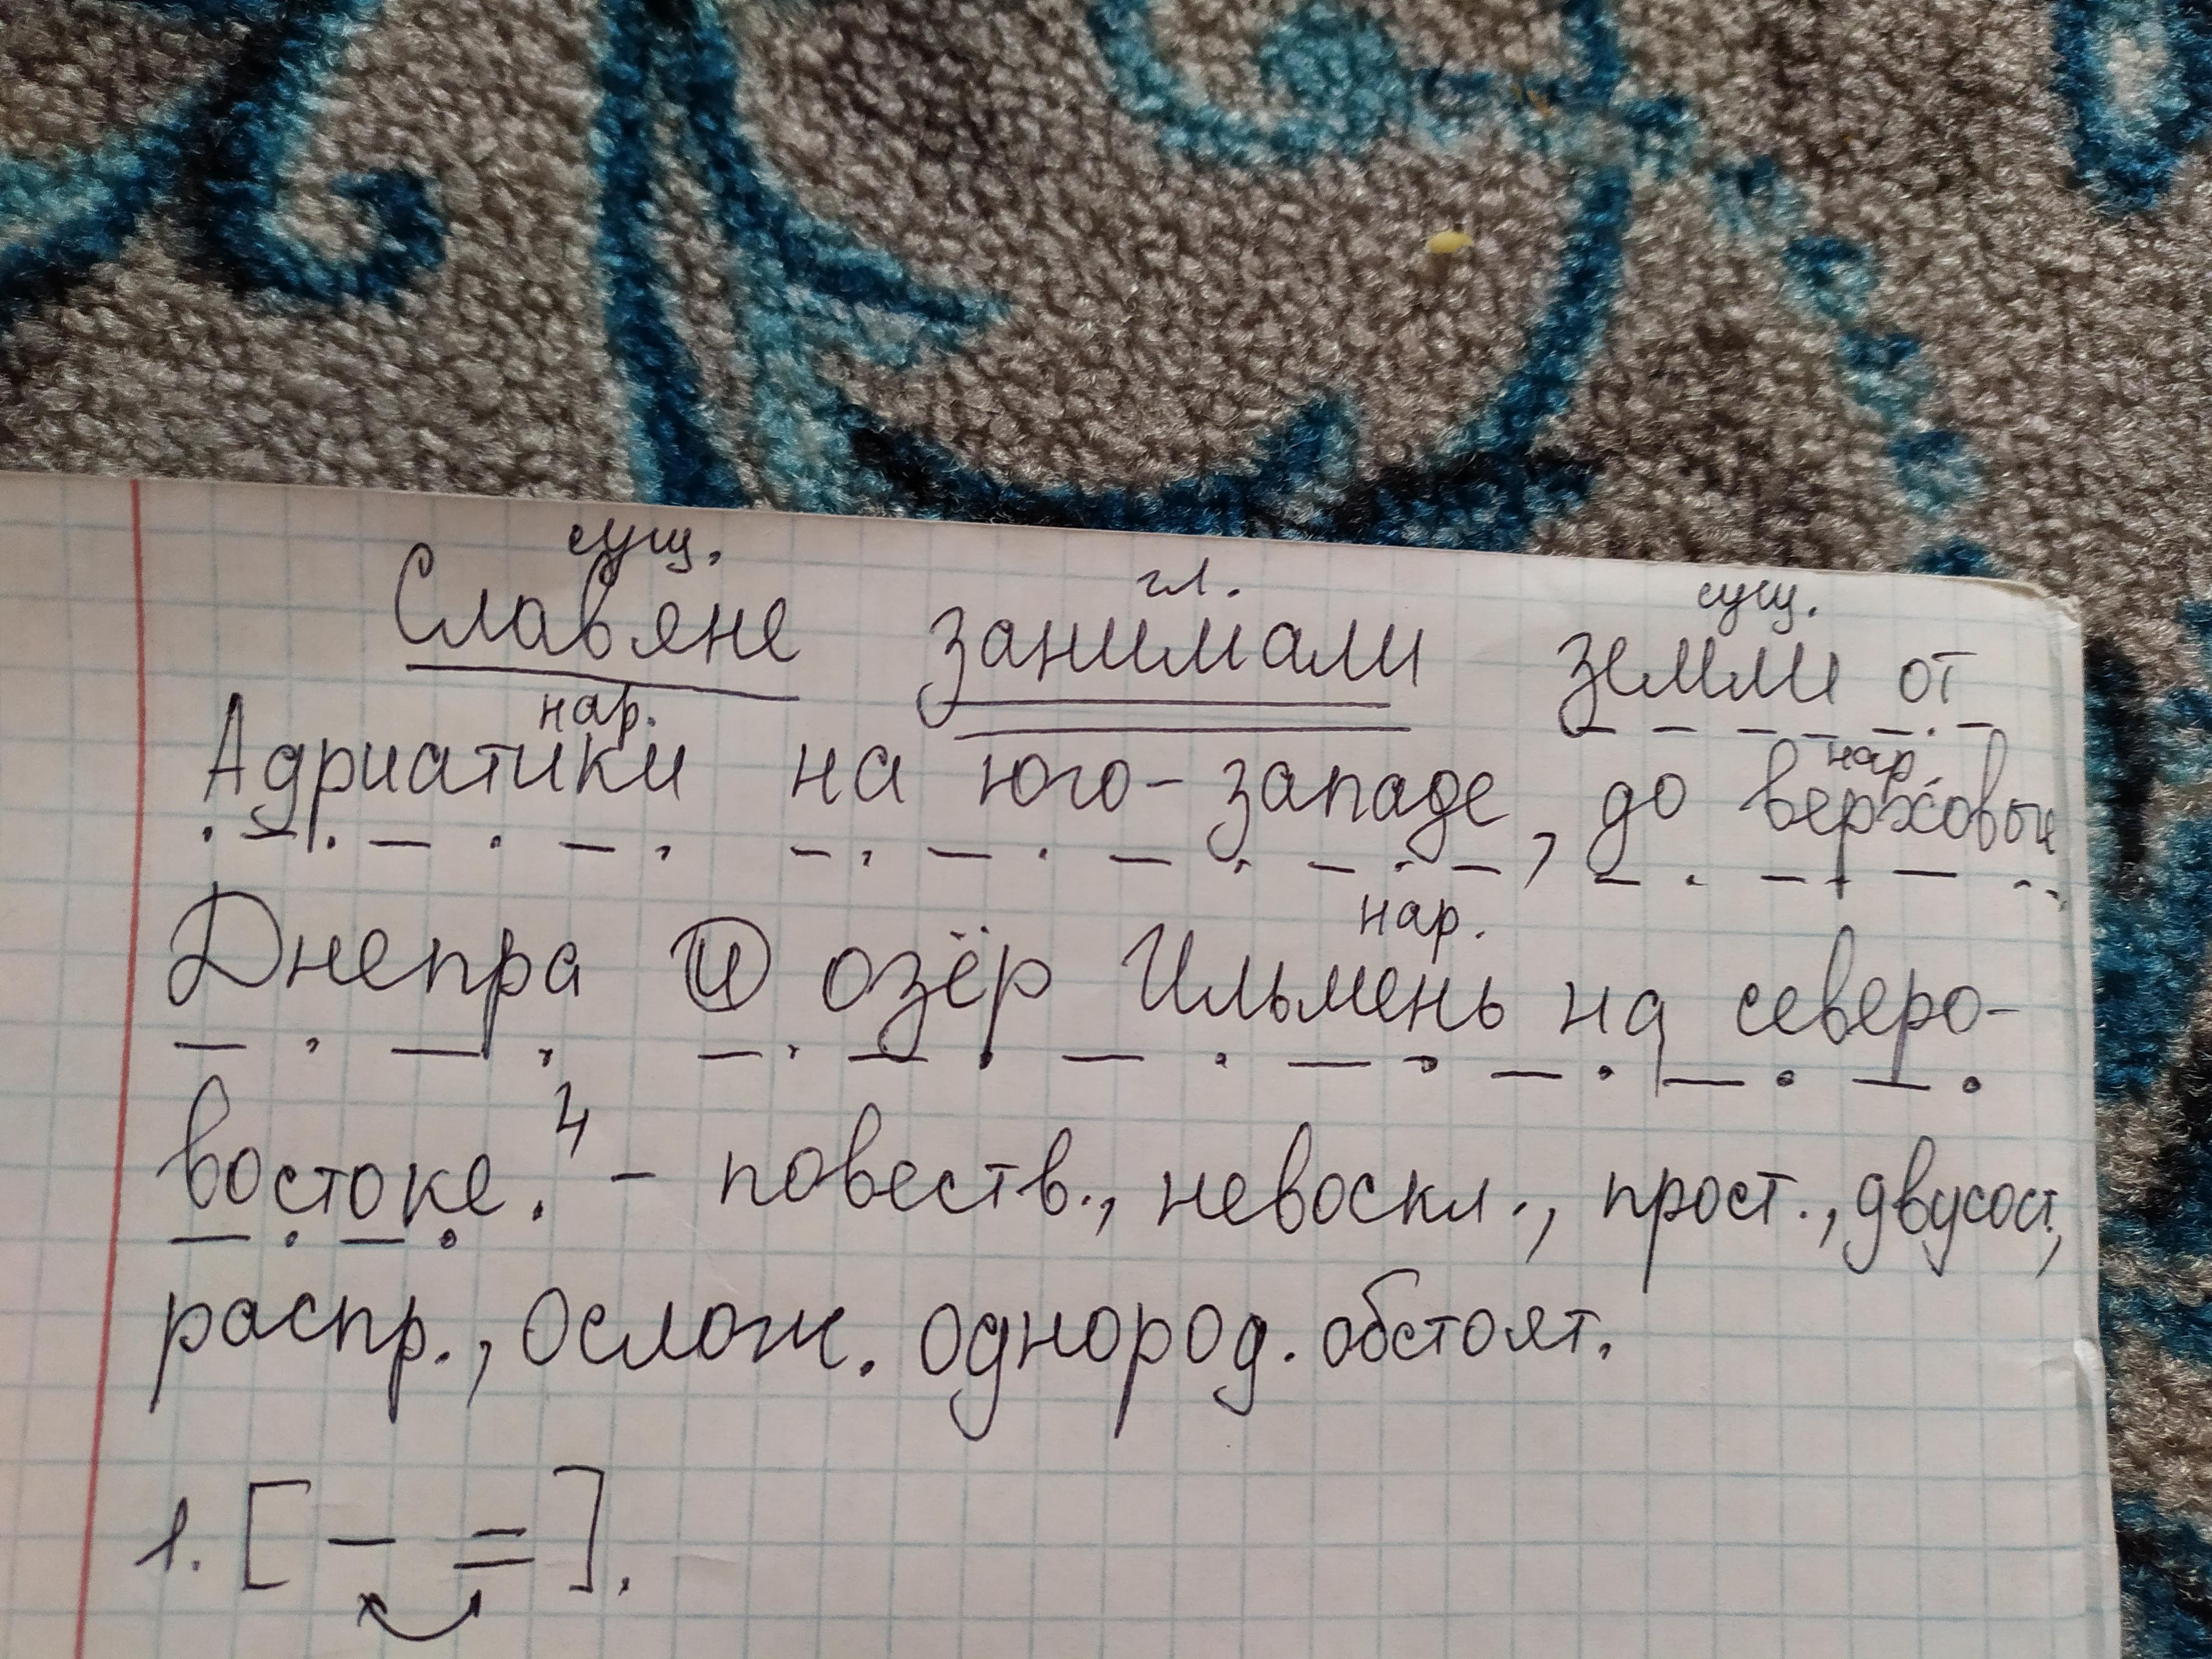 сущ. гл. сущ.
Славяне занимали земли от
нар. нар.
Адриатики на юго-западе, до верховьи
нар.
Днепра и озёр Ильмень на северо-
востоке.⁴ - повеств., невоскл., прост., двусост,
распр., ослож. однород. обстоят.
1. [ — = ].